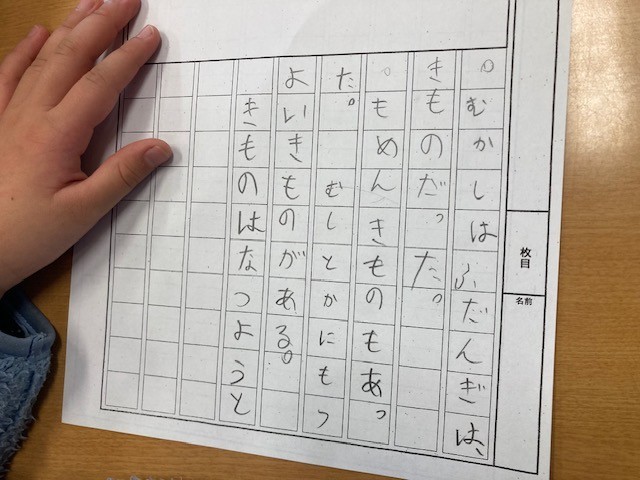 枚目
名前
。むかしはふだんぎは、
きものだった。
。もめんきものもあっ
た。　むしとかにもつ
よいきものがある。
　きものはなつようと